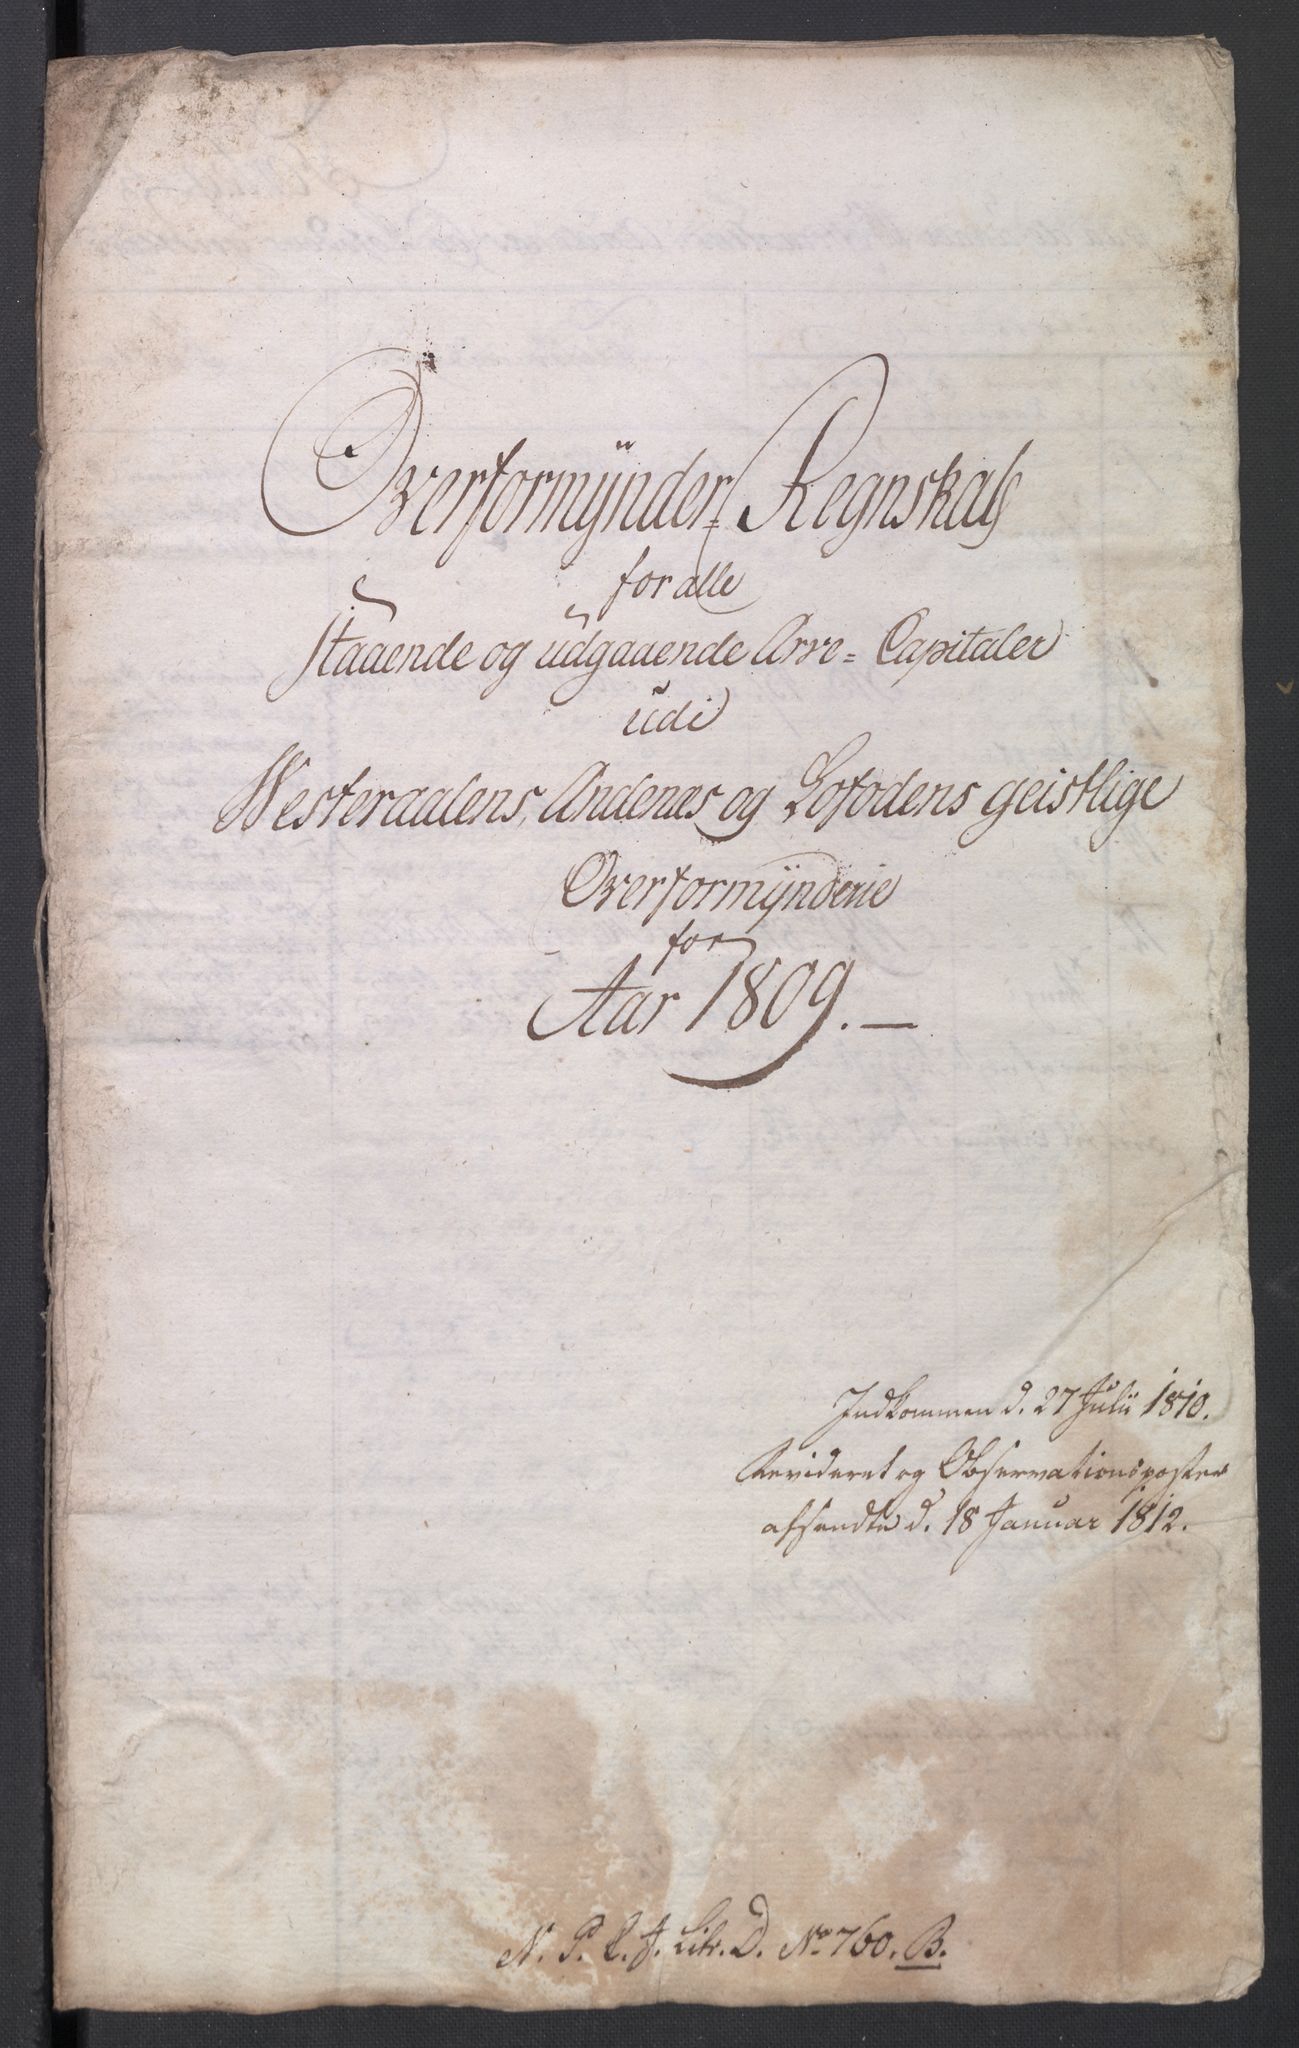 Overformÿnder-Regnskab
for alle
staaende og udgaaende Arve=Capitaler
udi
Westeraalens, Andenæs og Lofodens geistlige
Overformÿnderie
for
Aar 1809.—
Indkommen d. 27 Julii 1810.
Revideret og Observationsposter
afsendte d. 18 Januar 1812.
N. P. C. J. Litr. D. No 760. B.